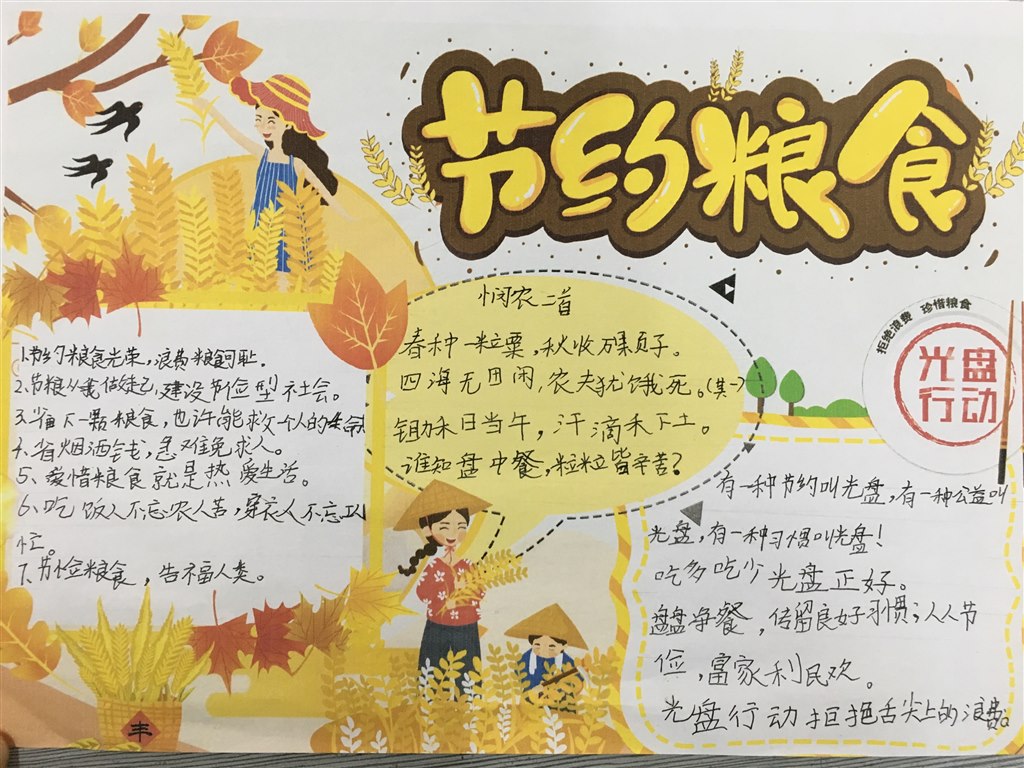 节约粮食
悯农二首
春种一粒粟,秋收万颗子。
四海无田闲,农夫犹饿死。(其一)
锄禾日当午,汗滴禾下土。
谁知盘中餐,粒粒皆辛苦?
1.节约粮食光荣,浪费粮食可耻.
2.节粮从我做起,建设节俭型社会。
3.省下一颗粮食,也许能救一个人的生命
4.省烟酒钱,急难免求人。
5、爱惜粮食就是热爱生活。
6、吃饭人不忘农人苦,穿衣人不忘工
忙。
7.节俭粮食,告福人类。
拒绝浪费 珍惜粮食
光盘
行动
有一种节约叫光盘,有一种公益叫
光盘,有一种习惯叫光盘!
吃多吃少光盘正好。
盘盘净餐,传留良好习惯;人人节
俭,富家利民欢。
光盘行动拒绝舌尖上的浪费。
丰